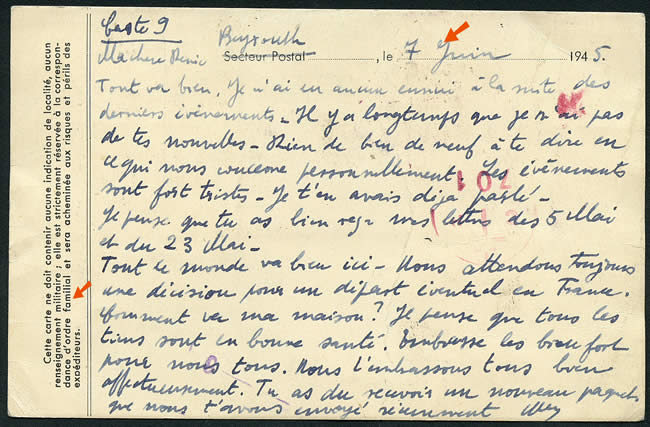 Carte 9
Beyrouth
Ma chère
Secteur Postal , le 7 Juin 1945.
Tout va bien. Je n'ai eu aucun ennui à la suite des
derniers évènements - Il y a longtemps que je n'ai pas
de tes nouvelles - Rien de bien de neuf à te dire en
ce qui nous concerne personnellement. Les évènements
sont fort tristes - Je t'en avais déjà parlé -
Je pense que tu as bien reçu mes lettres des 5 Mai
et du 23 Mai -
Tout le monde va bien ici - Nous attendons toujours
une décision pour un départ éventuel en France.
Comment va ma maison ? Je pense que tous les
tiens sont en bonne santé. Embrasse les bien fort
pour nous tous. Nous t'embrassons tous bien
affectueusement. Tu as du recevoir un nouveau paquet
que nous t'avons envoyé récemment
Cette carte ne doit contenir aucune indication de localité, aucun
renseignement militaire ; elle est strictement réservée à la correspon-
dance d'ordre familial et sera acheminée aux risques et périls des
expéditeurs.